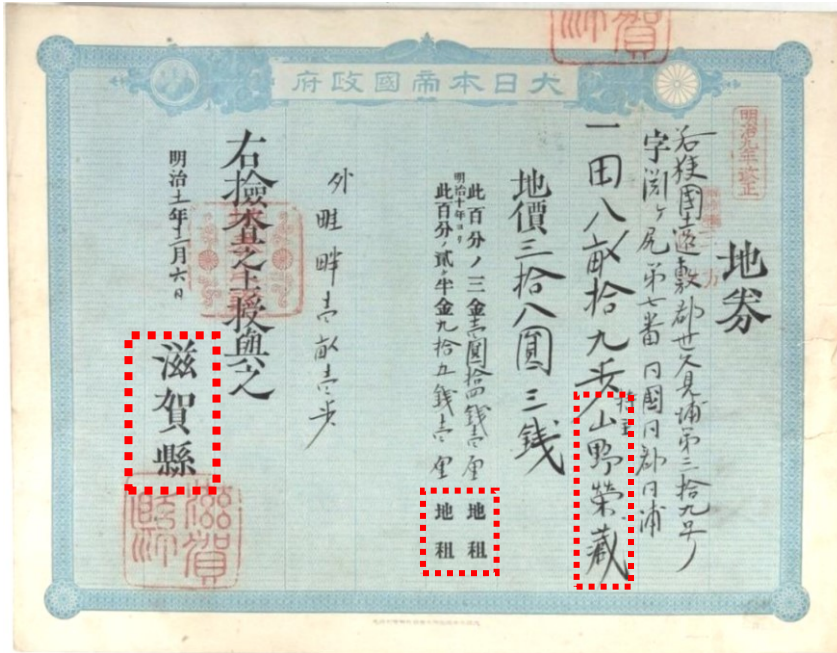 大日本帝國政府
明治九年改正
地券
若狹國遠敷郡世久見浦第三拾九号
字渕ヶ尻第七番 同國同郡同浦
一田八畝拾九歩 持主 山野榮藏
地價三拾八圓三錢
此百分ノ三金壱圓拾四錢壱厘 地租
明治十年ヨリ
此百分ノ貳ヶ半金九拾五錢壱厘 地租
外畦畔壱畝壱歩
右檢査之上授與之
明治十一年十二月六日
滋賀縣